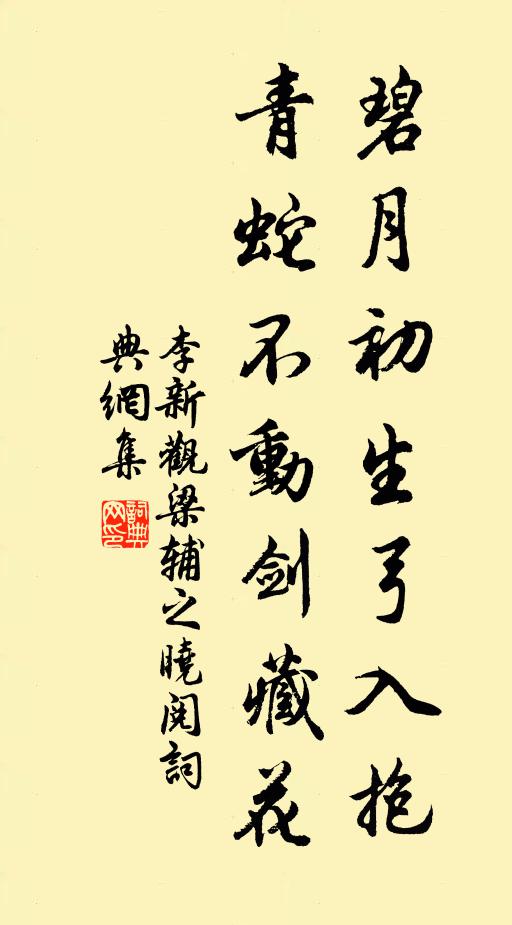 碧月初生弓入抱
青蛇不動劍藏花
李新觀梁辅之曉閱詞
典網集
詞典
网印